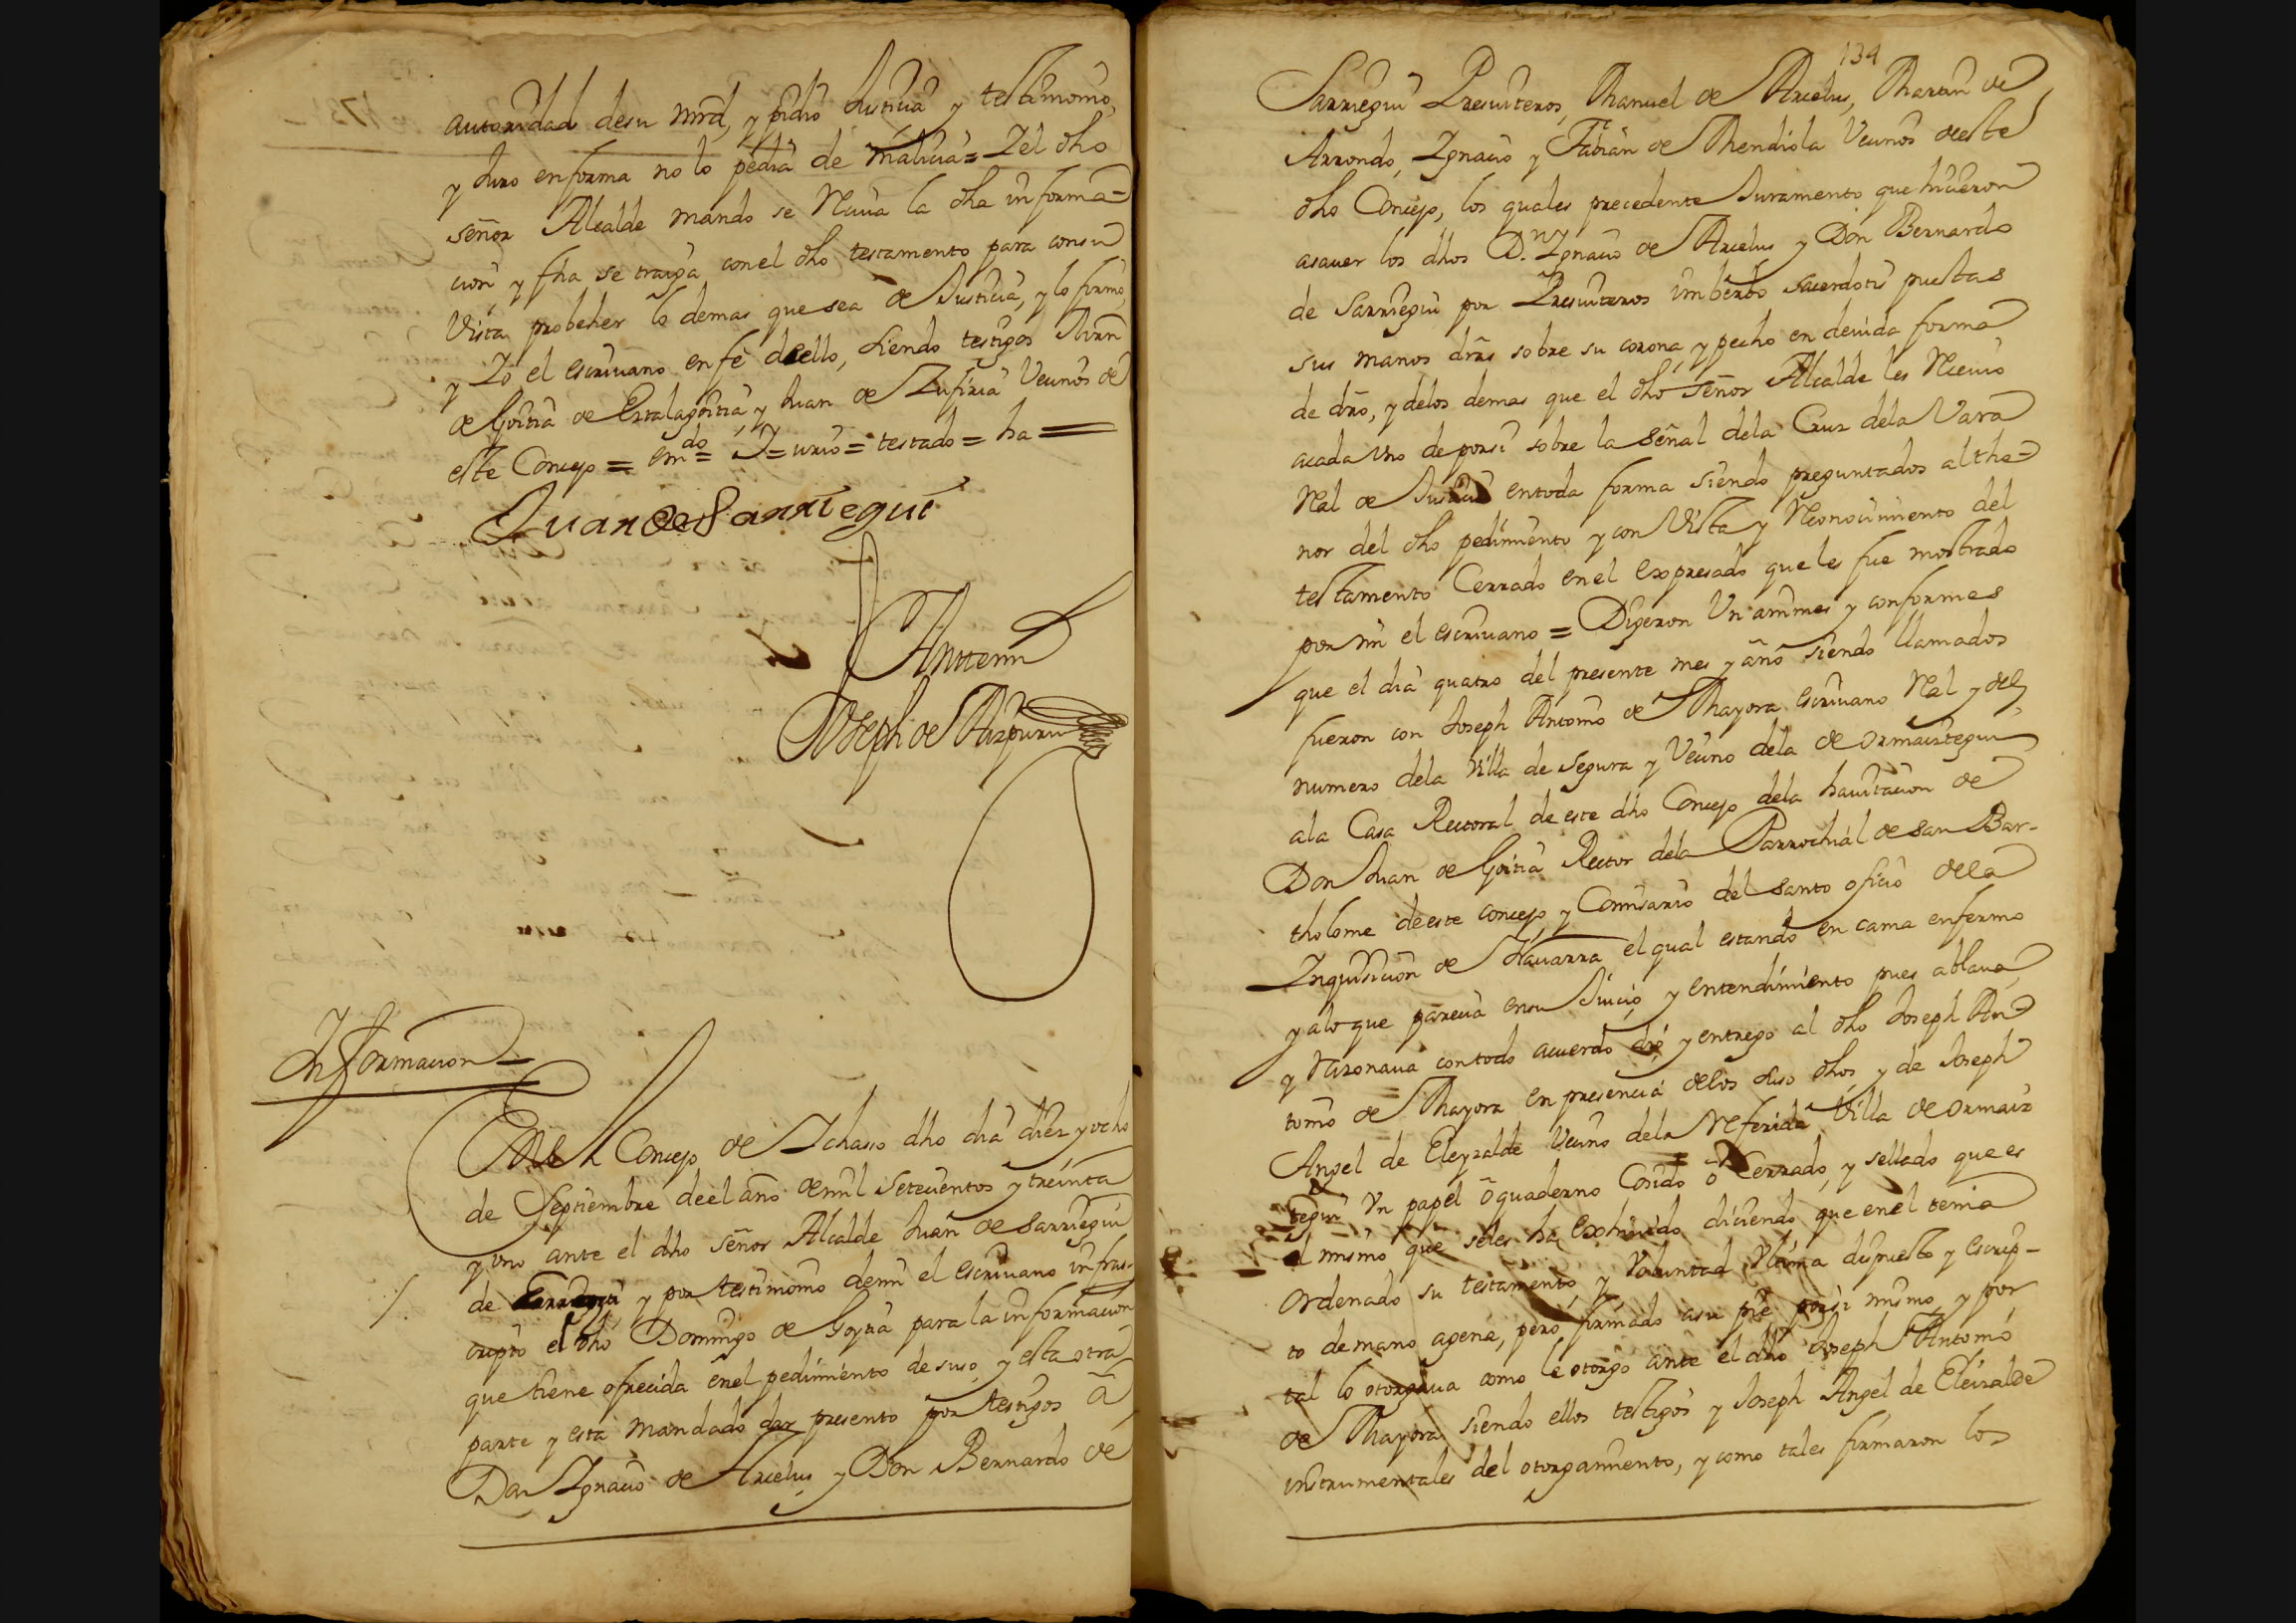 autoridad desu mrd, y pidio Justicia y testimonio,
y Juro enforma no lo pedia de malicia = Y el dho
señor Alcalde mando se Reciva la dha informa=
cion y fha se traiga con el dho testamento para consu
Vista probeher lo demas que sea de Justicia, y lo firmó,
y Yo el escrivano en fè de ello, siendo testigos Juan
de Goitia de Estalagoitia, y Juan de Zufiria Vecinos de
este Concejo = em.do = = testado = ha =
Juan de Sarriegui
Anttemi
Joseph de Aizpuru
Informacion
En el Concejo de Ichaso dho dia diez y ocho
de Septiembre de el año de mil setecientos y treinta
y uno ante el dho señor Alcalde Juan de Sarriegui
de y por testimonio de mi el escrivano infras=
cripto el dho Domingo de Goytia para la informacion
que tiene ofrecida en el pedimiento de suso, y esta otra
parte y esta mandado dar presento por testigos â
Don Ignacio de Arcelus, y Don Bernardo de
134
Sarriegui Presviteros, Manuel de Arcelus, Martin de
Arrondo, Ignacio y Fabian de Mendiola Vecinos de este
dho Concejo, los quales precedente Juramento que hicieron
asaver los dhos D.n Ignacio de Arcelus y Don Bernardo
de Sarriegui por Presviteros imberbo sacerdotis puestas
sus manos dras sobre su corona, y pecho en devida forma
de dro, y delos demas que el dho señor Alcalde les Recivio
acada uno de porsi sobre la señal dela Cruz dela Vara
Real de Justicia entoda forma siendo preguntados al the=
nor del dho pedimiento y con Vista y Reconocimiento del
testamento Cerrado en el expresado que les fue mostrado
por mi el escrivano = Digeron Unanimes y conformes
que el dia quatro del presente mes y año siendo llamados
fueron con Joseph Antonio de Mayora escrivano Real y del
numero dela Villa de Segura y Vecino dela de Ormaiztegui
ala Casa Rectoral de este dho Concejo dela havitacion de
Don Juan de Goitia Rector dela Parrochial de San Bar-
tholome de este concejo, y Comisario del santo oficio dela
Inquisicion de Navarra el qual estando en cama enfermo
y alo que parecia ensu Juicio, y entendimiento pues ablava
y Razonava con todo acuerdo dio y entrego al dho Joseph An=
tonio de Mayora en presencia delos suso dhos, y de Joseph
Angel de Eleyzalde Vecino dela Referida Villa de Ormaiz
tegui Un papel ô quaderno Cosido ô Cerrado, y sellado que es
el mismo que seles ha exhivido diciendo que en el tenia
Ordenado su testamento, y Voluntad Ultima dispuesto y escrip-
to de mano agena, pero firmado asu pie porsi mismo, y por
tal lo otorgava como le otorgo ante el dho Joseph Antonio
de Mayora siendo ellos testigos y Joseph Angel de Eleizalde
instrumentales del otorgamiento, y como tales firmaron los